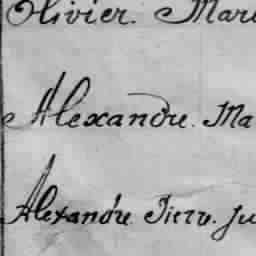 Olivier. Mari
Alexandre. Ma
Alexandre Pierr. Ju